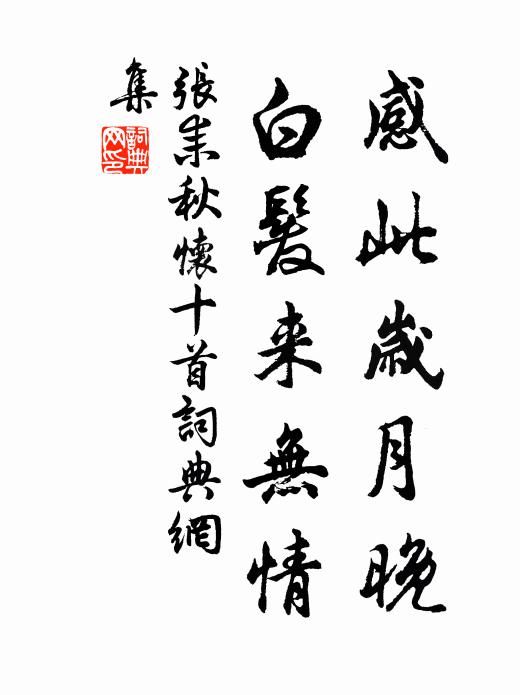 感此歲月晚
白髮来無情
張耒秋懷十首詞典網
集
詞典
网印